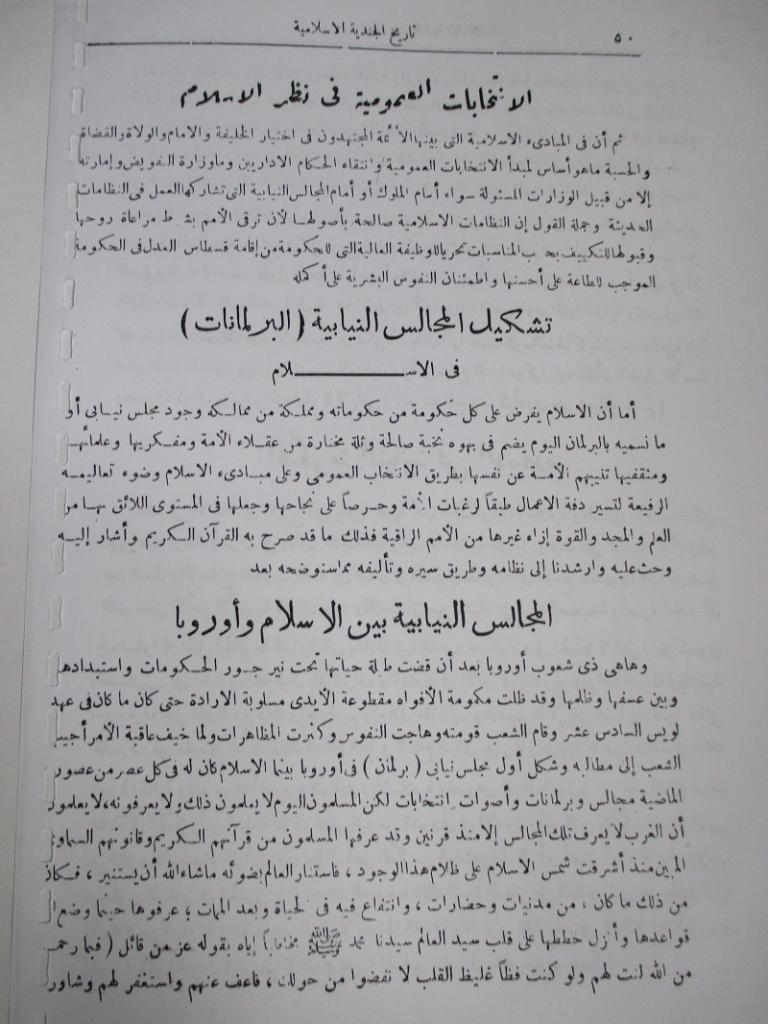 ٥٠
تاريخ الجندية الاسلامية
الانتخابات العمومية فى نظر الاسلام
ثم أن فى المبادىء الاسلامية التى بينها الأئمة المجتهدون فى اختيار الخليفة والامام والولاة والقضاة
والحسبة ماهو أساس لمبدأ الانتخابات العمومية وانتقاء الحكام الاداريين وماوزارة التفويض وإمارته
إلا من قبيل الوزارات المسئولة سواء أمام الملوك أو أمام المجالس النيابية التى تشاركها العمل فى النظامات
الحديثة وجملة القول إن النظامات الاسلامية صالحة بأصولها لأن ترقى الأمم بشرط مراعاة روحها
وقبولها للتكييف بحسب المناسبات تحريا للوظيفة العالية التى للحكومة من إقامة قسطاس العدل فى الحكومة
الموجب للطاعة على أحسنها واطمئنان النفوس البشرية على أكمله
تشكيل المجالس النيابية ( البرلمانات )
فى الاسـلام
أما أن الاسلام يفرض على كل حكومة من حكوماته ومملكة من ممالكه وجود مجلس نيابى أو
ما نسميه بالبرلمان اليوم يضم فى بهوه نخبة صالحة وثلة مختارة من عقلاء الأمة ومفكريها وعلمائها
ومثقفيها تنيبهم الأمة عن نفسها بطريق الانتخاب العمومى وعلى مبادىء الاسلام وضوء تعاليمه
الرفيعة لتسير دفة الاعمال طبقاً لرغبات الأمة وحرصاً على نجاحها وجعلها فى المستوى اللائق بها من
العلم والمجد والقوة إزاء غيرها من الأمم الراقية فذلك ما قد صرح به القرآن الكريم وأشار إليه
وحث عليه وارشدنا إلى نظامه وطريق سيره وتأليفه مما سنوضحه بعد
المجالس النيابية بين الاسلام وأوروبا
وهاهى ذى شعوب أوروبا بعد أن قضت طيلة حياتها تحت نير جور الحكومات واستبدادها
وبين عسفها وظلمها وقد ظلت مكومة الأفواه مقطوعة الأيدى مسلوبة الارادة حتى كان ما كان فى عهد
لويس السادس عشر وقام الشعب قومته وهاجت النفوس وكثرت المظاهرات ولما خيف عاقبة الأمر أجيب
الشعب إلى مطالبه وشكل أول مجلس نيابى ( برلمان ) فى أوروبا بينما الاسلام كان له فى كل عصر من عصوره
الماضية مجالس وبرلمانات وأصوات انتخابات لكن المسلمون اليوم لا يعلمون ذلك ولا يعرفونه، لا يعلمون
أن الغرب لا يعرف تلك المجالس إلا منذ قرنين وقد عرفها المسلمون من قرآنهم الكريم وقانونهم السماوى
المبين منذ أشرقت شمس الاسلام على ظلام هذا الوجود ، فاستنار العالم بضوئه ماشاء الله أن يستنير ، فكان
من ذلك ما كان ، من مدنيات وحضارات ، وانتفاع فيه فى الحياة وبعد الممات ؛ عرفوها حينما وضع الله
قواعدها وأنزل خططها على قلب سيد العالم سيدنا محمد ﷺ مخاطباً إياه بقوله عز من قائل ( فبما رحمة
من الله لنت لهم ولو كنت فظاً غليظ القلب لا نفضوا من حولك ، فاعف عنهم واستغفر لهم وشاورهم